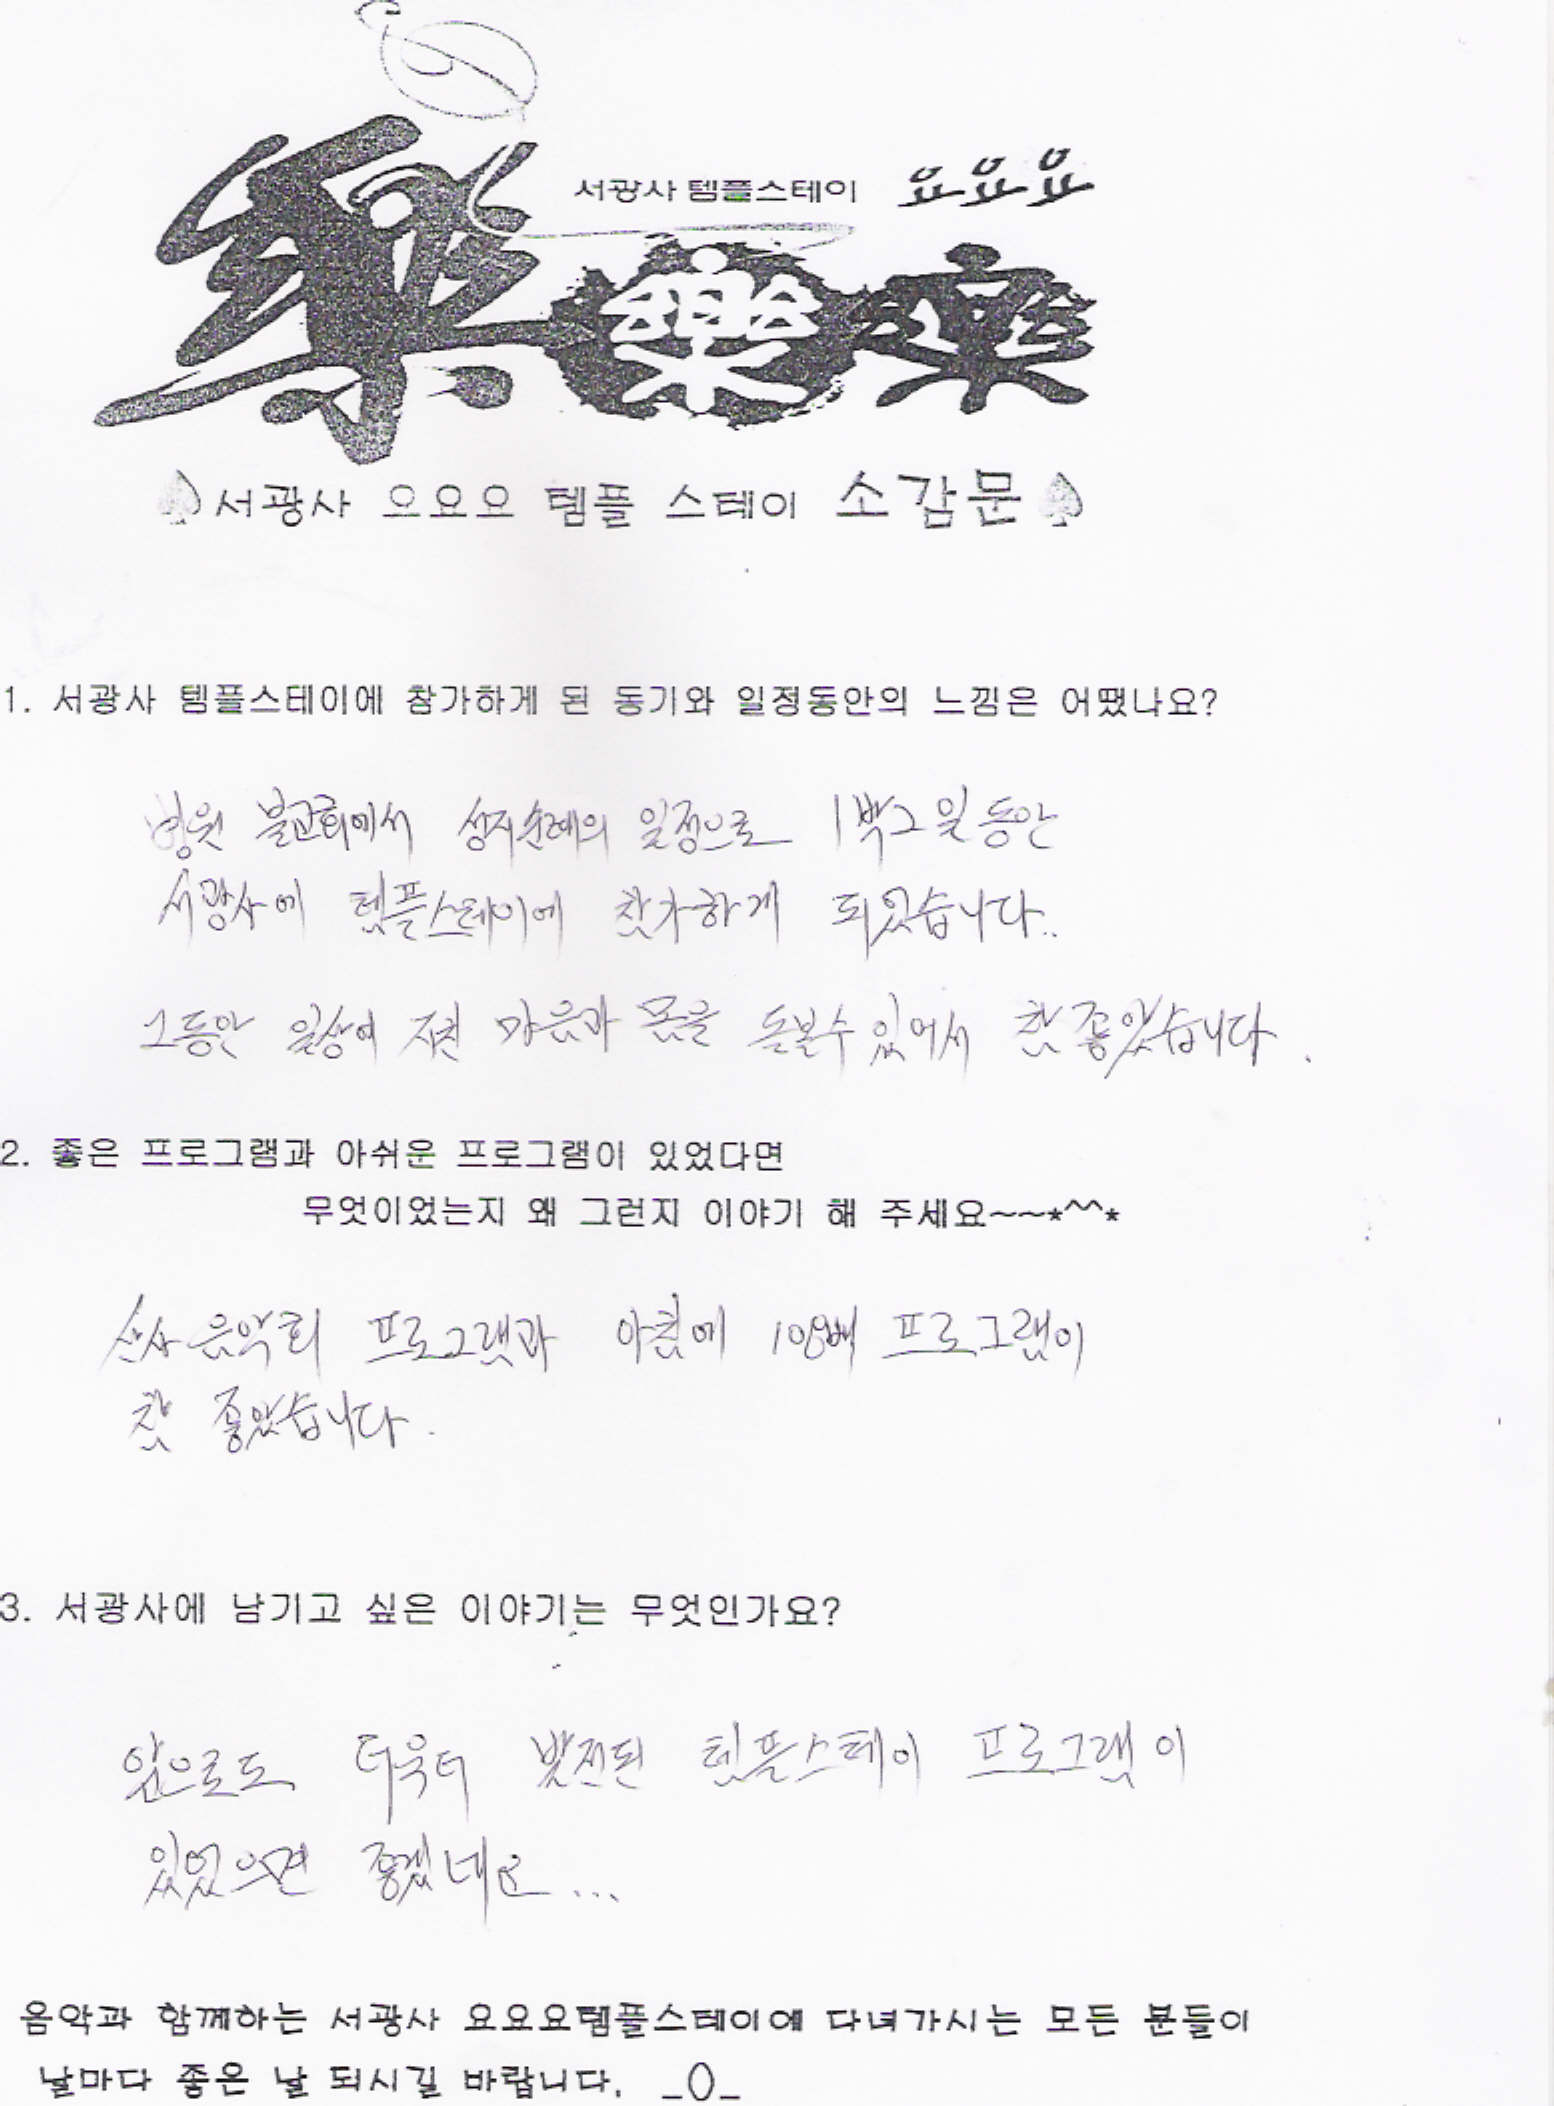 서광사 템플스테이 요요요
樂樂樂
서광사 으요요 템플 스테이 소감문
1. 서광사 템플스테이에 참가하게 된 동기와 일정동안의 느낌은 어땠나요?
병원 불교회에서 성지순례의 일정으로 1박2일동안
서광사에 템플스테이에 참가하게 되었습니다..
그동안 일상에 젖힌 마음과 몸을 돌볼수 있어서 참 좋았습니다.
2. 좋은 프로그램과 아쉬운 프로그램이 있었다면
무엇이었는지 왜 그런지 이야기 해 주세요~~*^^*
산사 음악회 프로그램과 아침에 108배 프로그램이
참 좋았습니다.
3. 서광사에 남기고 싶은 이야기는 무엇인가요?
앞으로도 더욱더 발전된 템플스테이 프로그램이
있었으면 좋겠네요...
음악과 함께하는 서광사 요요요템플스테이에 다녀가시는 모든 분들이
날마다 좋은 날 되시길 바랍니다. _()_